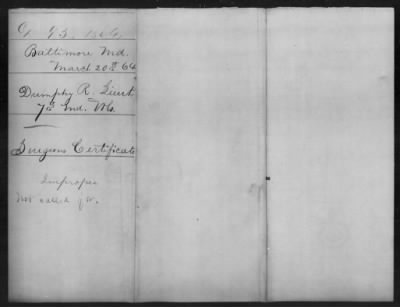 Baltimore Md.
March 20th 64
Dumphy R. Lieut
7th Ind. Vols
Surgeons Certificate
Improper
Not called for.